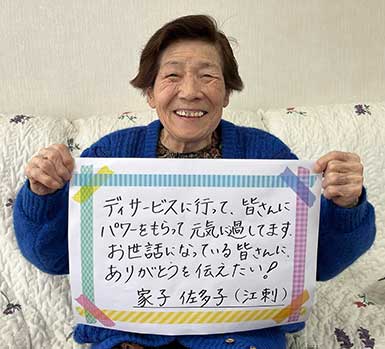 デイサービスに行って、皆さんに
パワーをもらって 元気に過してます。
お世話になっている皆さんに、
ありがとうを伝えたい!
家子 佐多子(江刺)